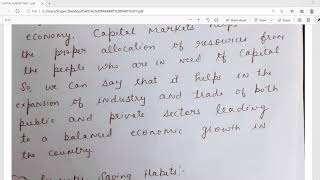 economy. Capital Markets helps
the proper allocation of resources from
the people who are in need of Capital
So, we can say that it helps in the
expansion of industry and trade of both
public and private sectors leading
to a balanced economic growth in
the country.
Saving Habits:-